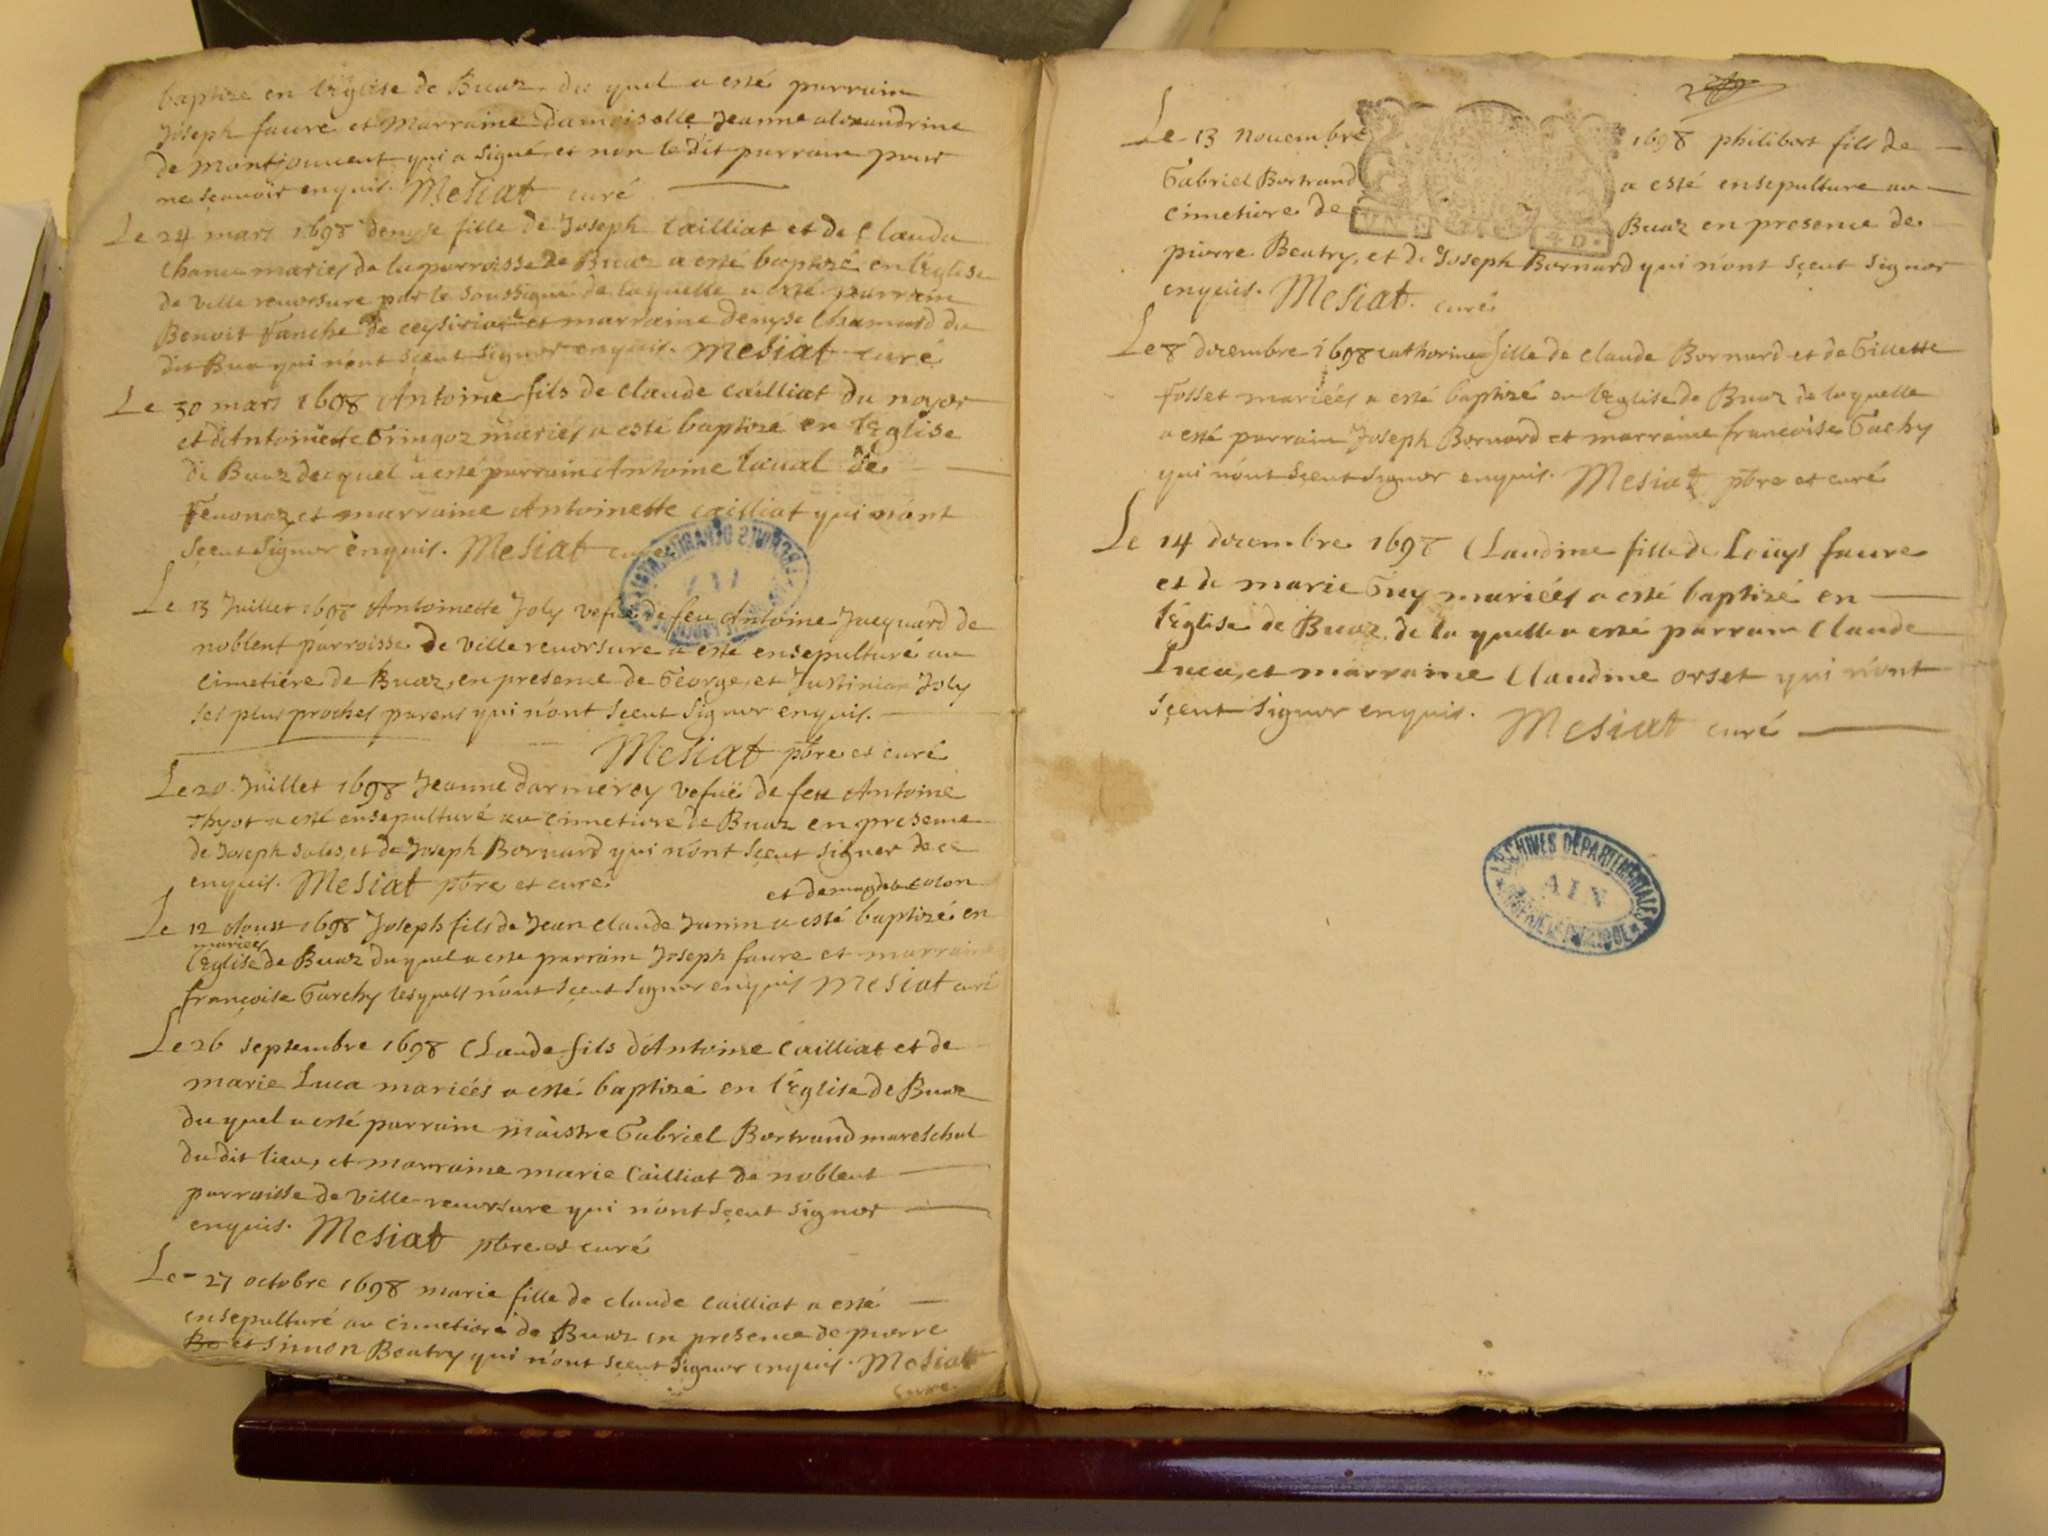 baptizé en l'Eglise de Buaz du quel a esté parrain
Joseph faure et Marraine damoiselle Jeanne alexandrine
de montjouuent qui a signé et non le dit parrain pour
ne sçauoir enquis. Mesiat curé
Le 24 mars 1698 denyse fille de Joseph Cailliat et de Clauda
mariés de la parroisse de Buaz a esté baptizé en l'Eglise
de ville reuersure par le soussigné de laquelle a esté parrain
Benoit de et marraine denyse Chamard du
dit Bua qui n'ont sçeut signer enquis. Mesiat curé
Le 30 mars 1698 Antoine fils de claude Cailliat du noyer
et d'Antoinette Gringoz mariés a esté baptizé en l'Eglise
de Buaz du quel a esté parrain Antoine Laual de
et marraine Antoinette Cailliat qui n'ont
sçeut signer enquis. Mesiat curé
Le 13 Juillet 1698 Antoinette Joly vefue de feu Antoine Jacquard de
noblent parroisse de ville reuersure a esté ensepulturé au
Cimetiere de Buaz, en presence de George, et Justinian Joly
ses plus proches parens qui n'ont sçeut signer enquis.
Mesiat pbre et curé
Le 20 Juillet 1698 Jeanne darmerey vefuë de feu Antoine
Thyot a esté ensepulturé au cimetiere de Buaz en presence
de Joseph et de Joseph Bernard qui n'ont sçeut signer de ce
enquis. Mesiat pbre et curé
et de magdele colon
Le 12 Aoust 1698 Joseph fils de Jean claude Janin a esté baptizé en
mariees
l'Eglise de Buaz du quel a esté parrain Joseph faure et marraine
françoise Garchy lesquels n'ont sçeut signer enquis Mesiat curé
Le 26 septembre 1698 Claude fils d'Antoine Cailliat et de
marie Luca mariéés a esté baptizé en l'Eglise de Buaz
du quel a esté parrain maistre Gabriel Bertrand mareschal
du dit lieu, et marraine marie Cailliat de noblent
parroisse de ville reuersure qui n'ont sçeut signer
enquis. Mesiat pbre et curé
Le 27 octobre 1698 marie fille de claude Cailliat a esté
ensepulturé au cimetiere de Buaz en presence de pierre
Be et Simon Beatry qui n'ont sçeut signer enquis. Mesiat
curé
Le 13 nouembre 1698 philibert fils de
Gabriel Bertrand a esté ensepulture au
cimetiere de Buaz en presence de
pierre Beatry, et de Joseph Bernard qui n'ont sçeut signer
enquis. Mesiat. curé
Le 8 decembre 1698 catherine fille de claude Bernard et de Gillette
fosset mariéés a esté baptizé en l'Eglise de Buaz de laquelle
a esté parrain Joseph Bernard et marraine françoise Gachy
qui n'ont sçeut signer enquis. Mesiat pbre et curé
Le 14 decembre 1698 Claudine fille de Loüys faure
et de marie Guy mariéés a esté baptizé en
l'Eglise de Buaz, de la quelle a esté parrain Claude
Luca, et marraine Claudine orset qui n'ont
sçeut signer enquis. Mesiat curé
ARCHIVES DEPARTEMENTALES
AIN